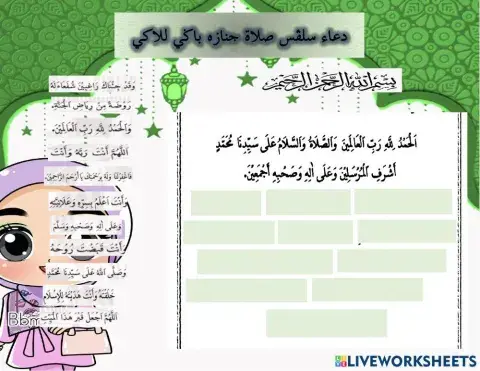 دعاء سلڤس صلاة جنازه باݢي للاكي
بِسْمِ اللهِ الرَّحْمٰنِ الرَّحِيْمِ
اَلْحَمْدُ لِلّٰهِ رَبِّ الْعَالَمِيْنَ وَالصَّلَاةُ وَالسَّلَامُ عَلَى سَيِّدِنَا مُحَمَّدٍ
أَشْرَفِ الْمُرْسَلِيْنَ وَعَلَى اٰلِهِ وَصَحْبِهِ أَجْمَعِيْنَ.
وَقَدْ جِئْنَاكَ رَاغِبِيْنَ شُفَعَاءَ لَهُ
رَوْضَةً مِنْ رِيَاضِ الْجَنَّةِ.
وَالْحَمْدُ لِلّٰهِ رَبِّ الْعَالَمِيْنَ.
اَللّٰهُمَّ أَنْتَ رَبُّهُ وَأَنْتَ
فَاغْفِرْلَنَا وَلَهُ بِرَحْمَتِكَ يَا أَرْحَمَ الرَّاحِمِيْنَ.
وَأَنْتَ أَعْلَمُ بِسِرِّهِ وَعَلَانِيَتِهِ
وَعَلَى اٰلِهِ وَصَحْبِهِ وَسَلَّمَ
وَأَنْتَ قَبَضْتَ رُوْحَهُ
وَصَلَّى اللهُ عَلَى سَيِّدِنَا مُحَمَّدٍ
خَلَقْتَهُ وَأَنْتَ هَدَيْتَهُ لِلْإِسْلَامِ
اَللّٰهُمَّ اجْعَلْ قَبْرَ هَذَا الْمَيِّتِ
Bbm
LIVEWORKSHEETS